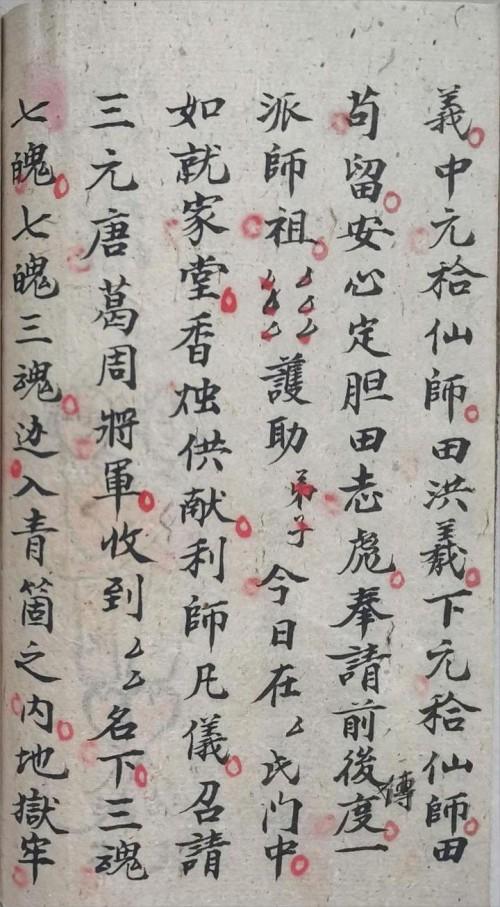 義中元拾仙師田洪義下元拾仙師田
苟留安心定胆田志彪奉請前後度傳一
派師祖厶厶厶厶厶厶護助弟子今日在厶氏门中
如就家堂香烛供献利師凡儀召請
三元唐葛周將軍收到厶厶名下三魂
七魄七魄三魂进入青箇之内地獄牢